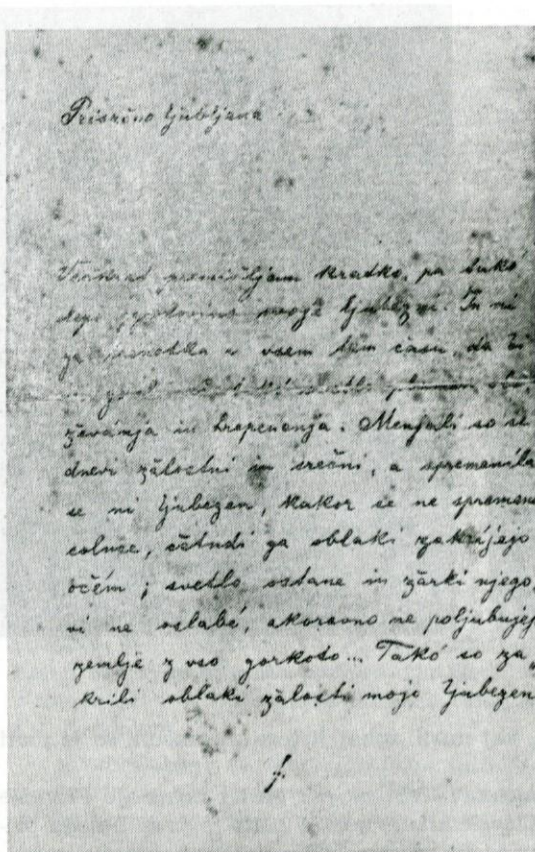 Prisrčno ljubljena
premišljam kratko, pa takó
lepo zgodovino moje ljubezni. In ni
ga trenotka v vsem tem času, da bi
plamen
ževánja in hrepenenja. Menjali so se
dnevi žálostni in srečni, a spremenila
se ni ljubezen, kakor se ne spremeni
solnce, četudi ga oblaki zakrijejo
očém; svetlo ostane in žárki njego,
vi ne oslabé, akoravno ne poljubujej
zemlje z vso gorkoto... Takó so za„
krili oblaki žálosti mojo ljubezen